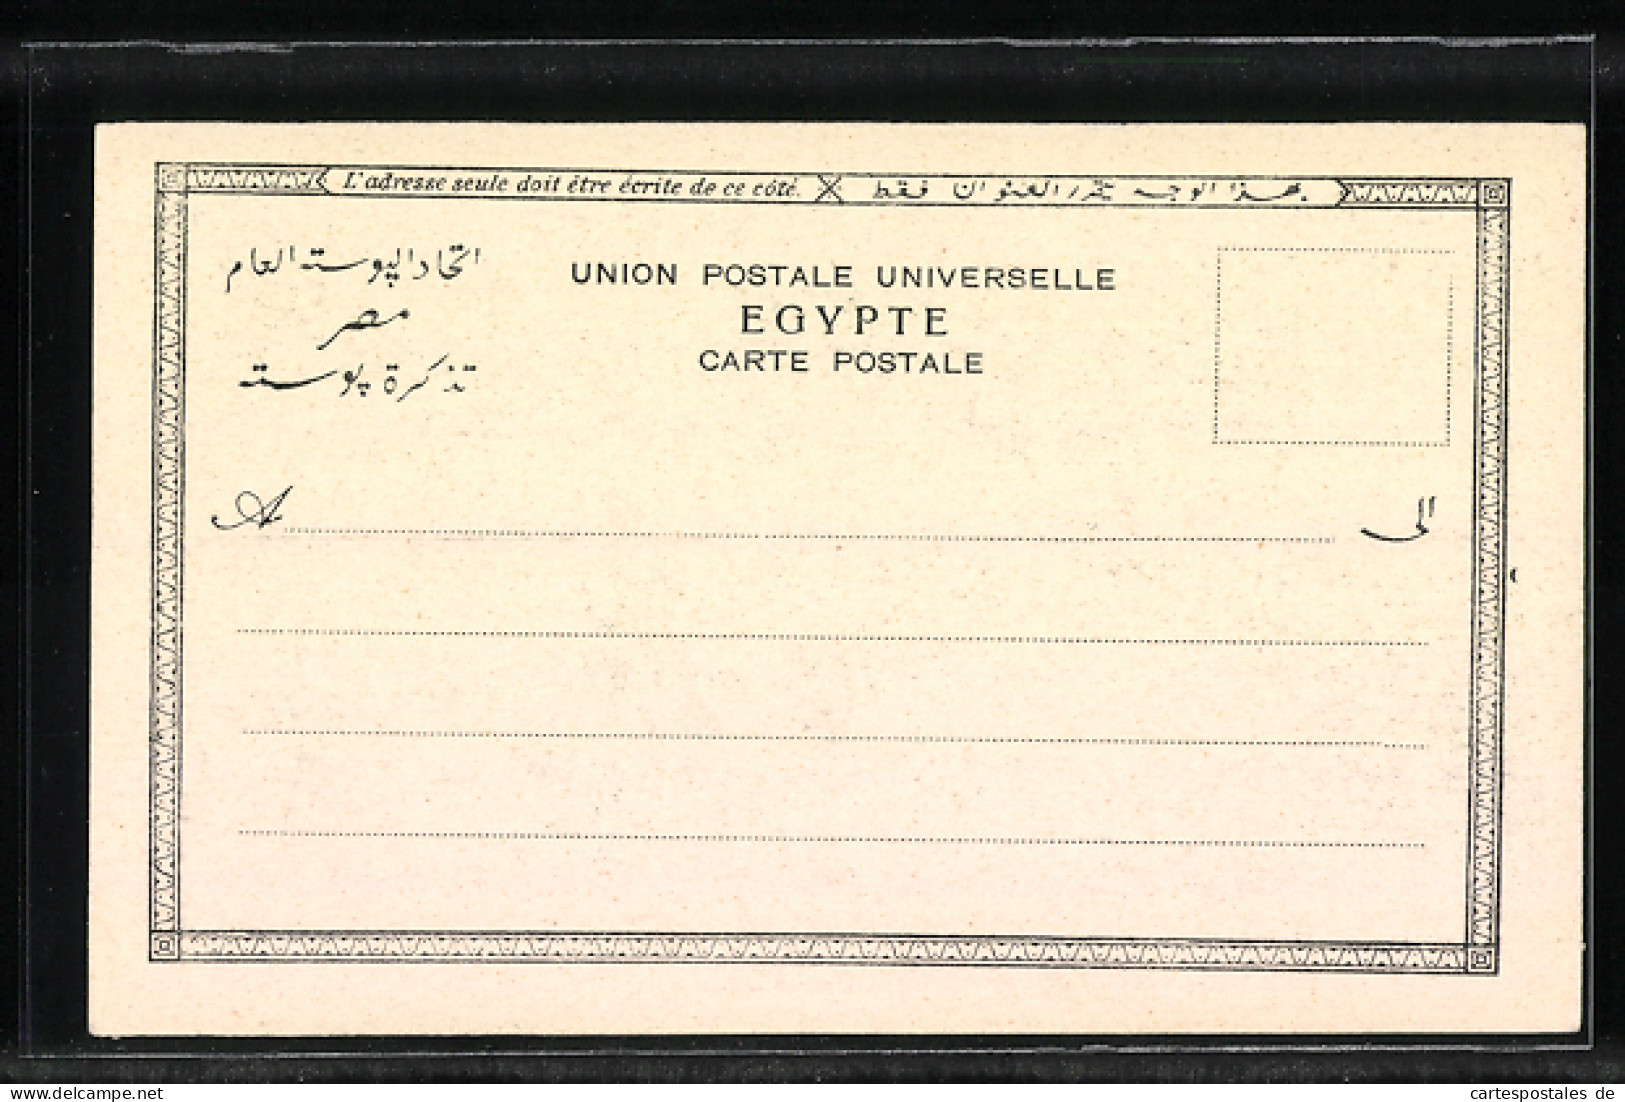 L'adresse seule doit être écrite de ce côté. بهذا الوجه يحرر العنوان فقط
اتحاد الپوسته العام
مصر
تذكرة پوسته
UNION POSTALE UNIVERSELLE
EGYPTE
CARTE POSTALE
A الى
cartespostales de